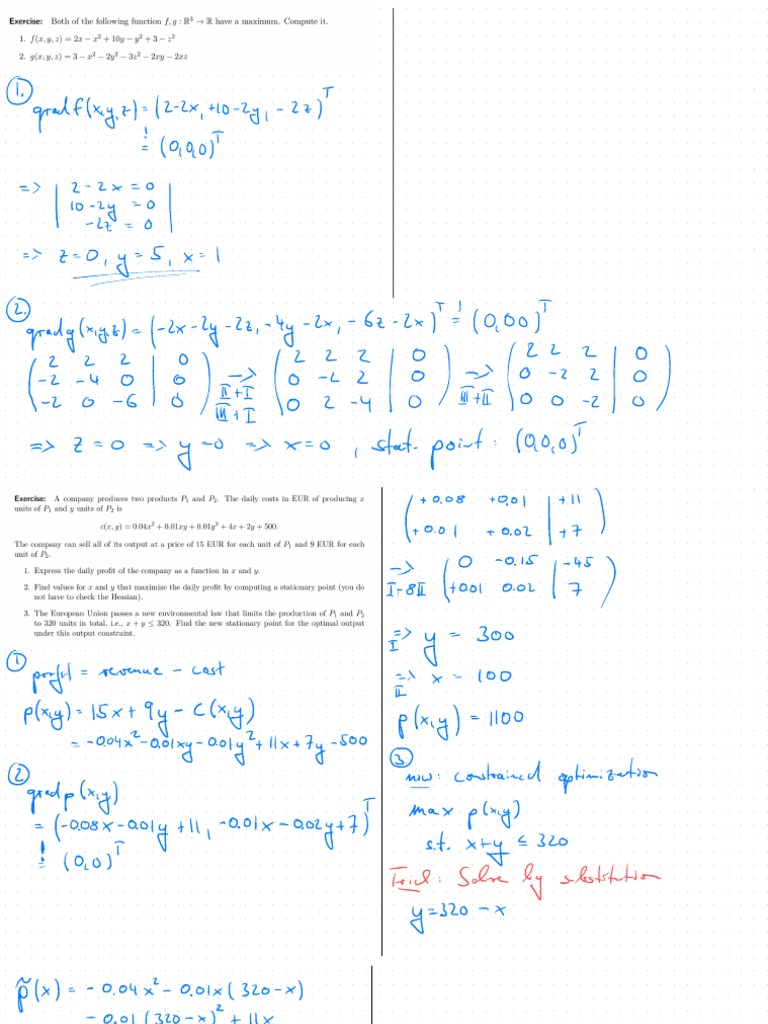 Exercise: Both of the following function f, g : ℝ³ → ℝ have a maximum. Compute it.
1. f(x, y, z) = 2x − x² + 10y − y² + 3 − z²
2. g(x, y, z) = 3 − x² − 2y² − 3z² − 2xy − 2xz
1.
grad f(x,y,z) = (2-2x, +10-2y, -2z)^T
! = (0,0,0)^T
=> | 2-2x = 0
10-2y = 0
-2z = 0 |
=> z=0, y=5, x=1
2.
grad g(x,y,z) = (-2x-2y-2z, -4y-2x, -6z-2x)^T != (0,0,0)^T
( 2 2 2 | 0 ) → ( 2 2 2 | 0 ) → ( 2 2 2 | 0 )
( -2 -4 0 | 0 ) II+I ( 0 -2 2 | 0 ) III+II ( 0 -2 2 | 0 )
( -2 0 -6 | 0 ) III+I ( 0 2 -4 | 0 ) ( 0 0 -2 | 0 )
=> z=0 => y=0 => x=0, stat. point: (0,0,0)^T
Exercise: A company produces two products P₁ and P₂. The daily costs in EUR of producing x
units of P₁ and y units of P₂ is
c(x, y) = 0.04x² + 0.01xy + 0.01y² + 4x + 2y + 500.
The company can sell all of its output at a price of 15 EUR for each unit of P₁ and 9 EUR for each
unit of P₂.
1. Express the daily profit of the company as a function in x and y.
2. Find values for x and y that maximize the daily profit by computing a stationary point (you do
not have to check the Hessian).
3. The European Union passes a new environmental law that limits the production of P₁ and P₂
to 320 units in total, i.e., x + y ≤ 320. Find the new stationary point for the optimal output
under this output constraint.
1
profit = revenue - cost
p(x,y) = 15x + 9y - C(x,y)
= -0.04x² - 0.01xy - 0.01y² + 11x + 7y - 500
2
grad p(x,y)
= (-0.08x - 0.01y + 11, -0.01x - 0.02y + 7)^T
! = (0,0)^T
( +0.08 +0.01 | +11 )
( +0.01 +0.02 | +7 )
→ ( 0 -0.15 | -45 )
I-8II ( +001 0.02 | 7 )
=> I y = 300
=> II x = 100
p(x,y) = 1100
3
now: constrained optimization
max p(x,y)
s.t. x+y ≤ 320
Trick: Solve by substitution
y = 320 - x
p̃(x) = -0.04x² - 0.01x(320-x)
- 0.01(320-x)² + 11x